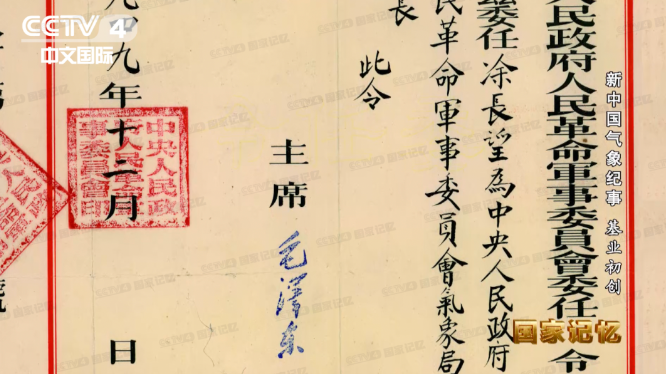 CCTV 4
中文国际
新中国气象纪事 基业初创
国家记忆
人民政府人民革命軍事委員會委任令
委任涂長望為中央人民政府
民革命軍事委員會氣象局
長
此令
主席 毛澤東
九四九年十二月 日
中央人民政
府人民革命軍
事委員會印